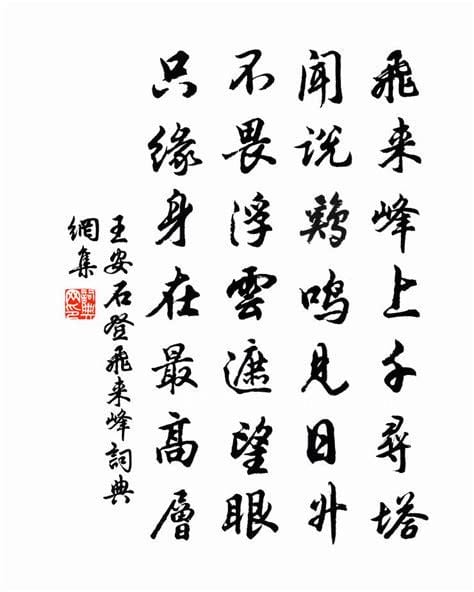 飛来峰上千尋塔
聞説鷄鳴見日升
不畏浮雲遮望眼
只緣身在最高層
王安石登飛来峰詞典
網集
詞典
网印